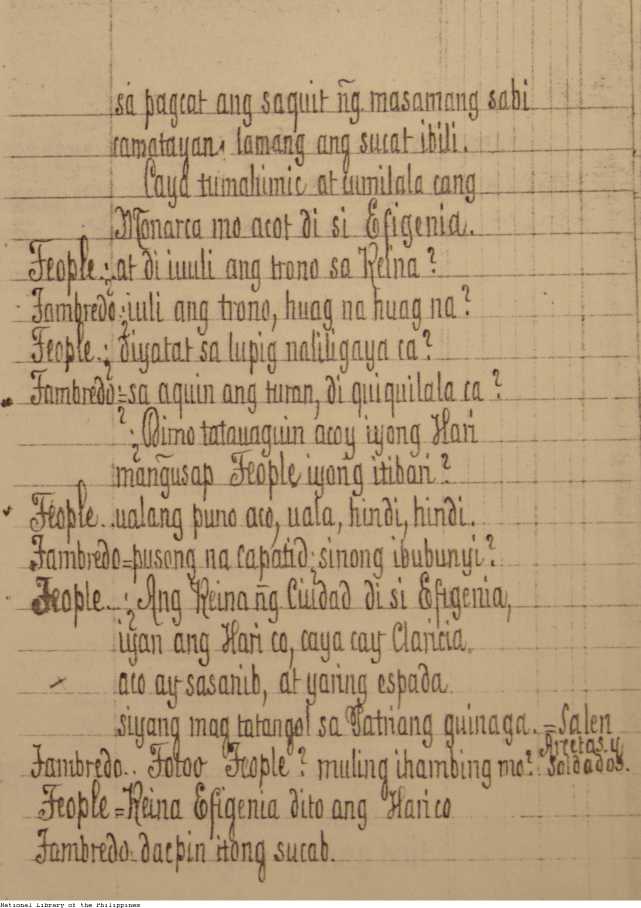 sa pagcat ang saquit ñg masamang sabi
camatayan lamang ang sucat ibili.
Caya tumahimic at cumilala cang
Monarca mo acot di si Efigenia.
Feople.; at di iuuli ang trono sa Reina?
Fambredo: iuli ang trono, huag na huag na?
Feople.; diyatat sa lupig naliligaya ca?
Fambredo:=sa aquin ang turan, di quiquilala ca?
?; Dimo tatauaguin acoy iyong Hari
mang̃usap Feople iyong itibari?
Feople...ualang puno aco, uala, hindi, hindi.
Fambredo=pusong na capatid; sinong ibubunyi?
Feople..; Ang Reina ñg Ciudad di si Efigenia,
iyan ang Hari co, caya cay Claricia
aco ay sasanib, at yaring espada
siyang mag tatangol sa Patriang guinaga.=Salen
Arcetas. y
Fambredo.. Totoo Feople? muling ihambing mo? Soldados.
Feople=Reina Efigenia dito ang Hari co
Fambredo. dacpin itong sucab.
National Library of the Philippines